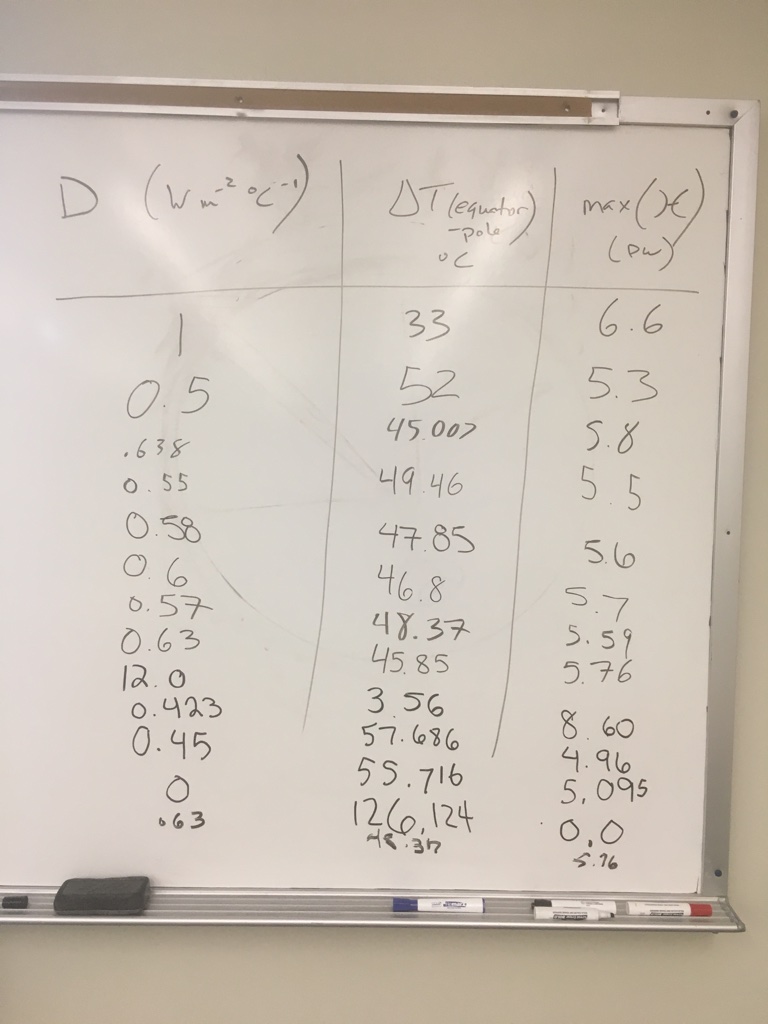 D (W m⁻² °C⁻¹) ΔT (equator - pole) °C max(ℋ) (PW)
1 33 6.6
0.5 52 5.3
.638 45.007 5.8
0.55 49.46 5.5
0.58 47.85 5.6
0.6 46.8 5.7
0.57 48.37 5.59
0.63 45.85 5.76
12.0 3.56 8.60
0.423 57.686 4.96
0.45 55.716 5.095
0 126.124 0.0
.63 48.37 5.76